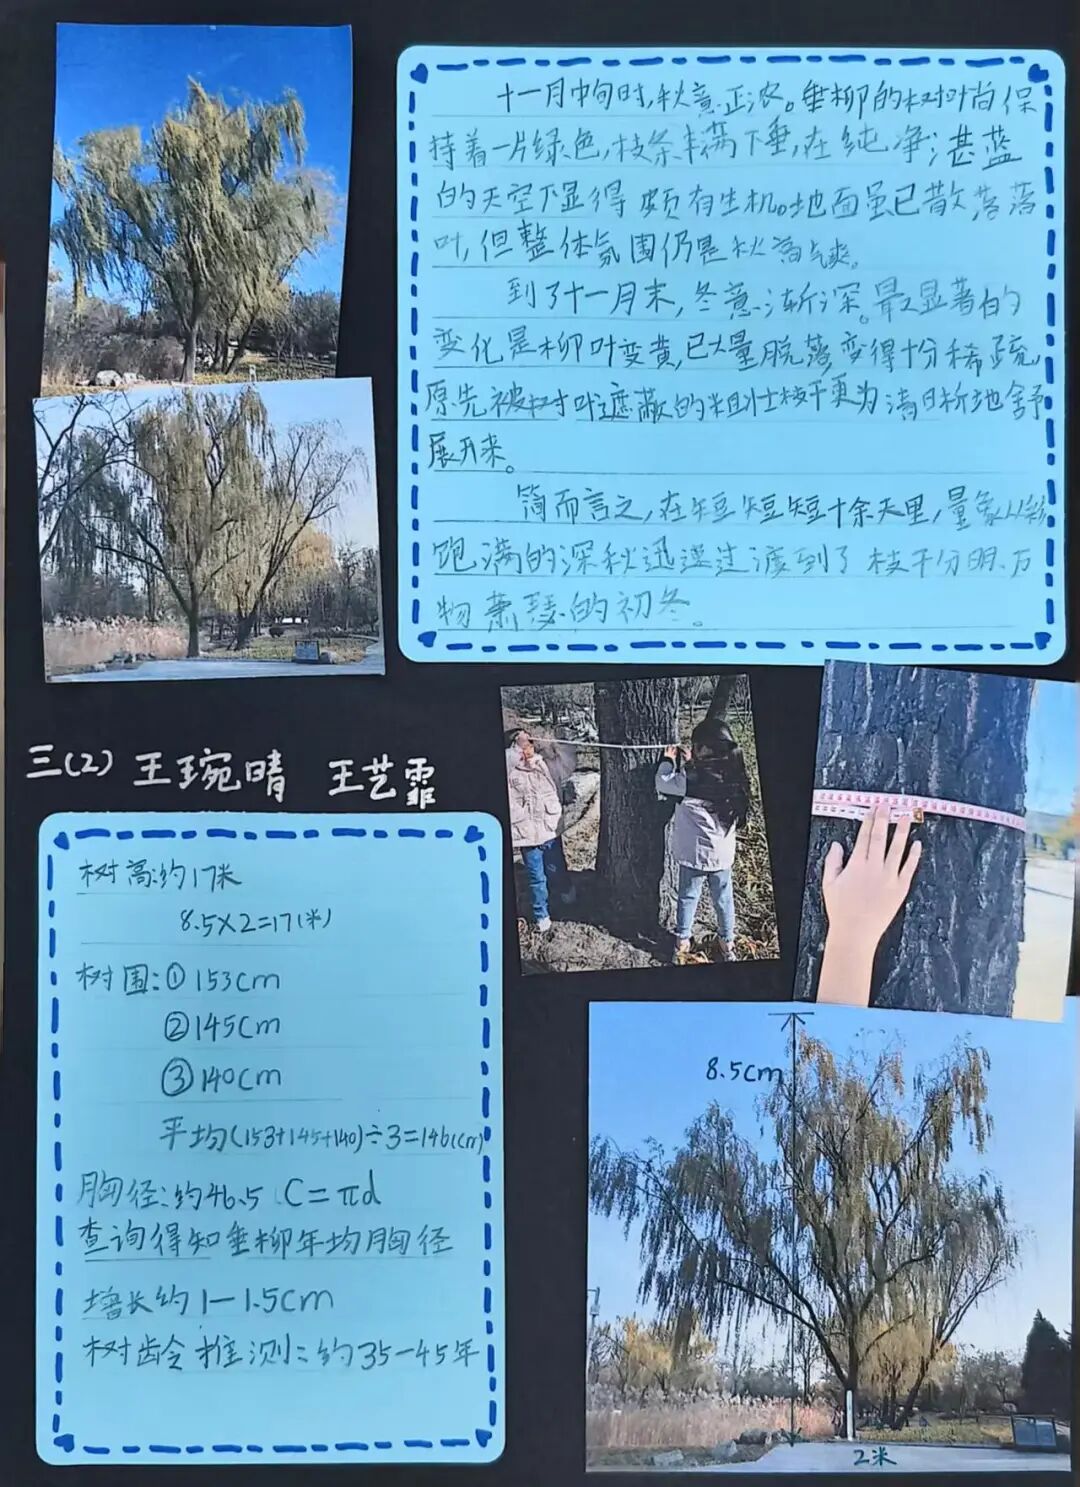 十一月中旬时,秋意正浓。垂柳的树叶尚保
持着一片绿色,枝条丰满下垂,在纯净湛蓝
的天空下显得颇有生机。地面虽已散落落
叶,但整体氛围仍是秋高气爽。
到了十一月末,冬意渐深。最显著的
变化是柳叶变黄,已大量脱落,变得十分稀疏,
原先被树叶遮蔽的粗壮枝干更为清晰地舒
展开来。
简而言之,在短短短十余天里,景象从
饱满的深秋迅速过渡到了枝干分明、万
物萧瑟的初冬。
三(2) 王琬晴 王艺霏
树高:约17米
8.5×2=17(米)
树围:①153cm
②145cm
③140cm
平均(153+145+140)÷3=146(cm)
胸径:约46.5 C=πd
查询得知垂柳年均胸径
增长约1-1.5cm
树龄推测:约35-45年
8.5cm
2米